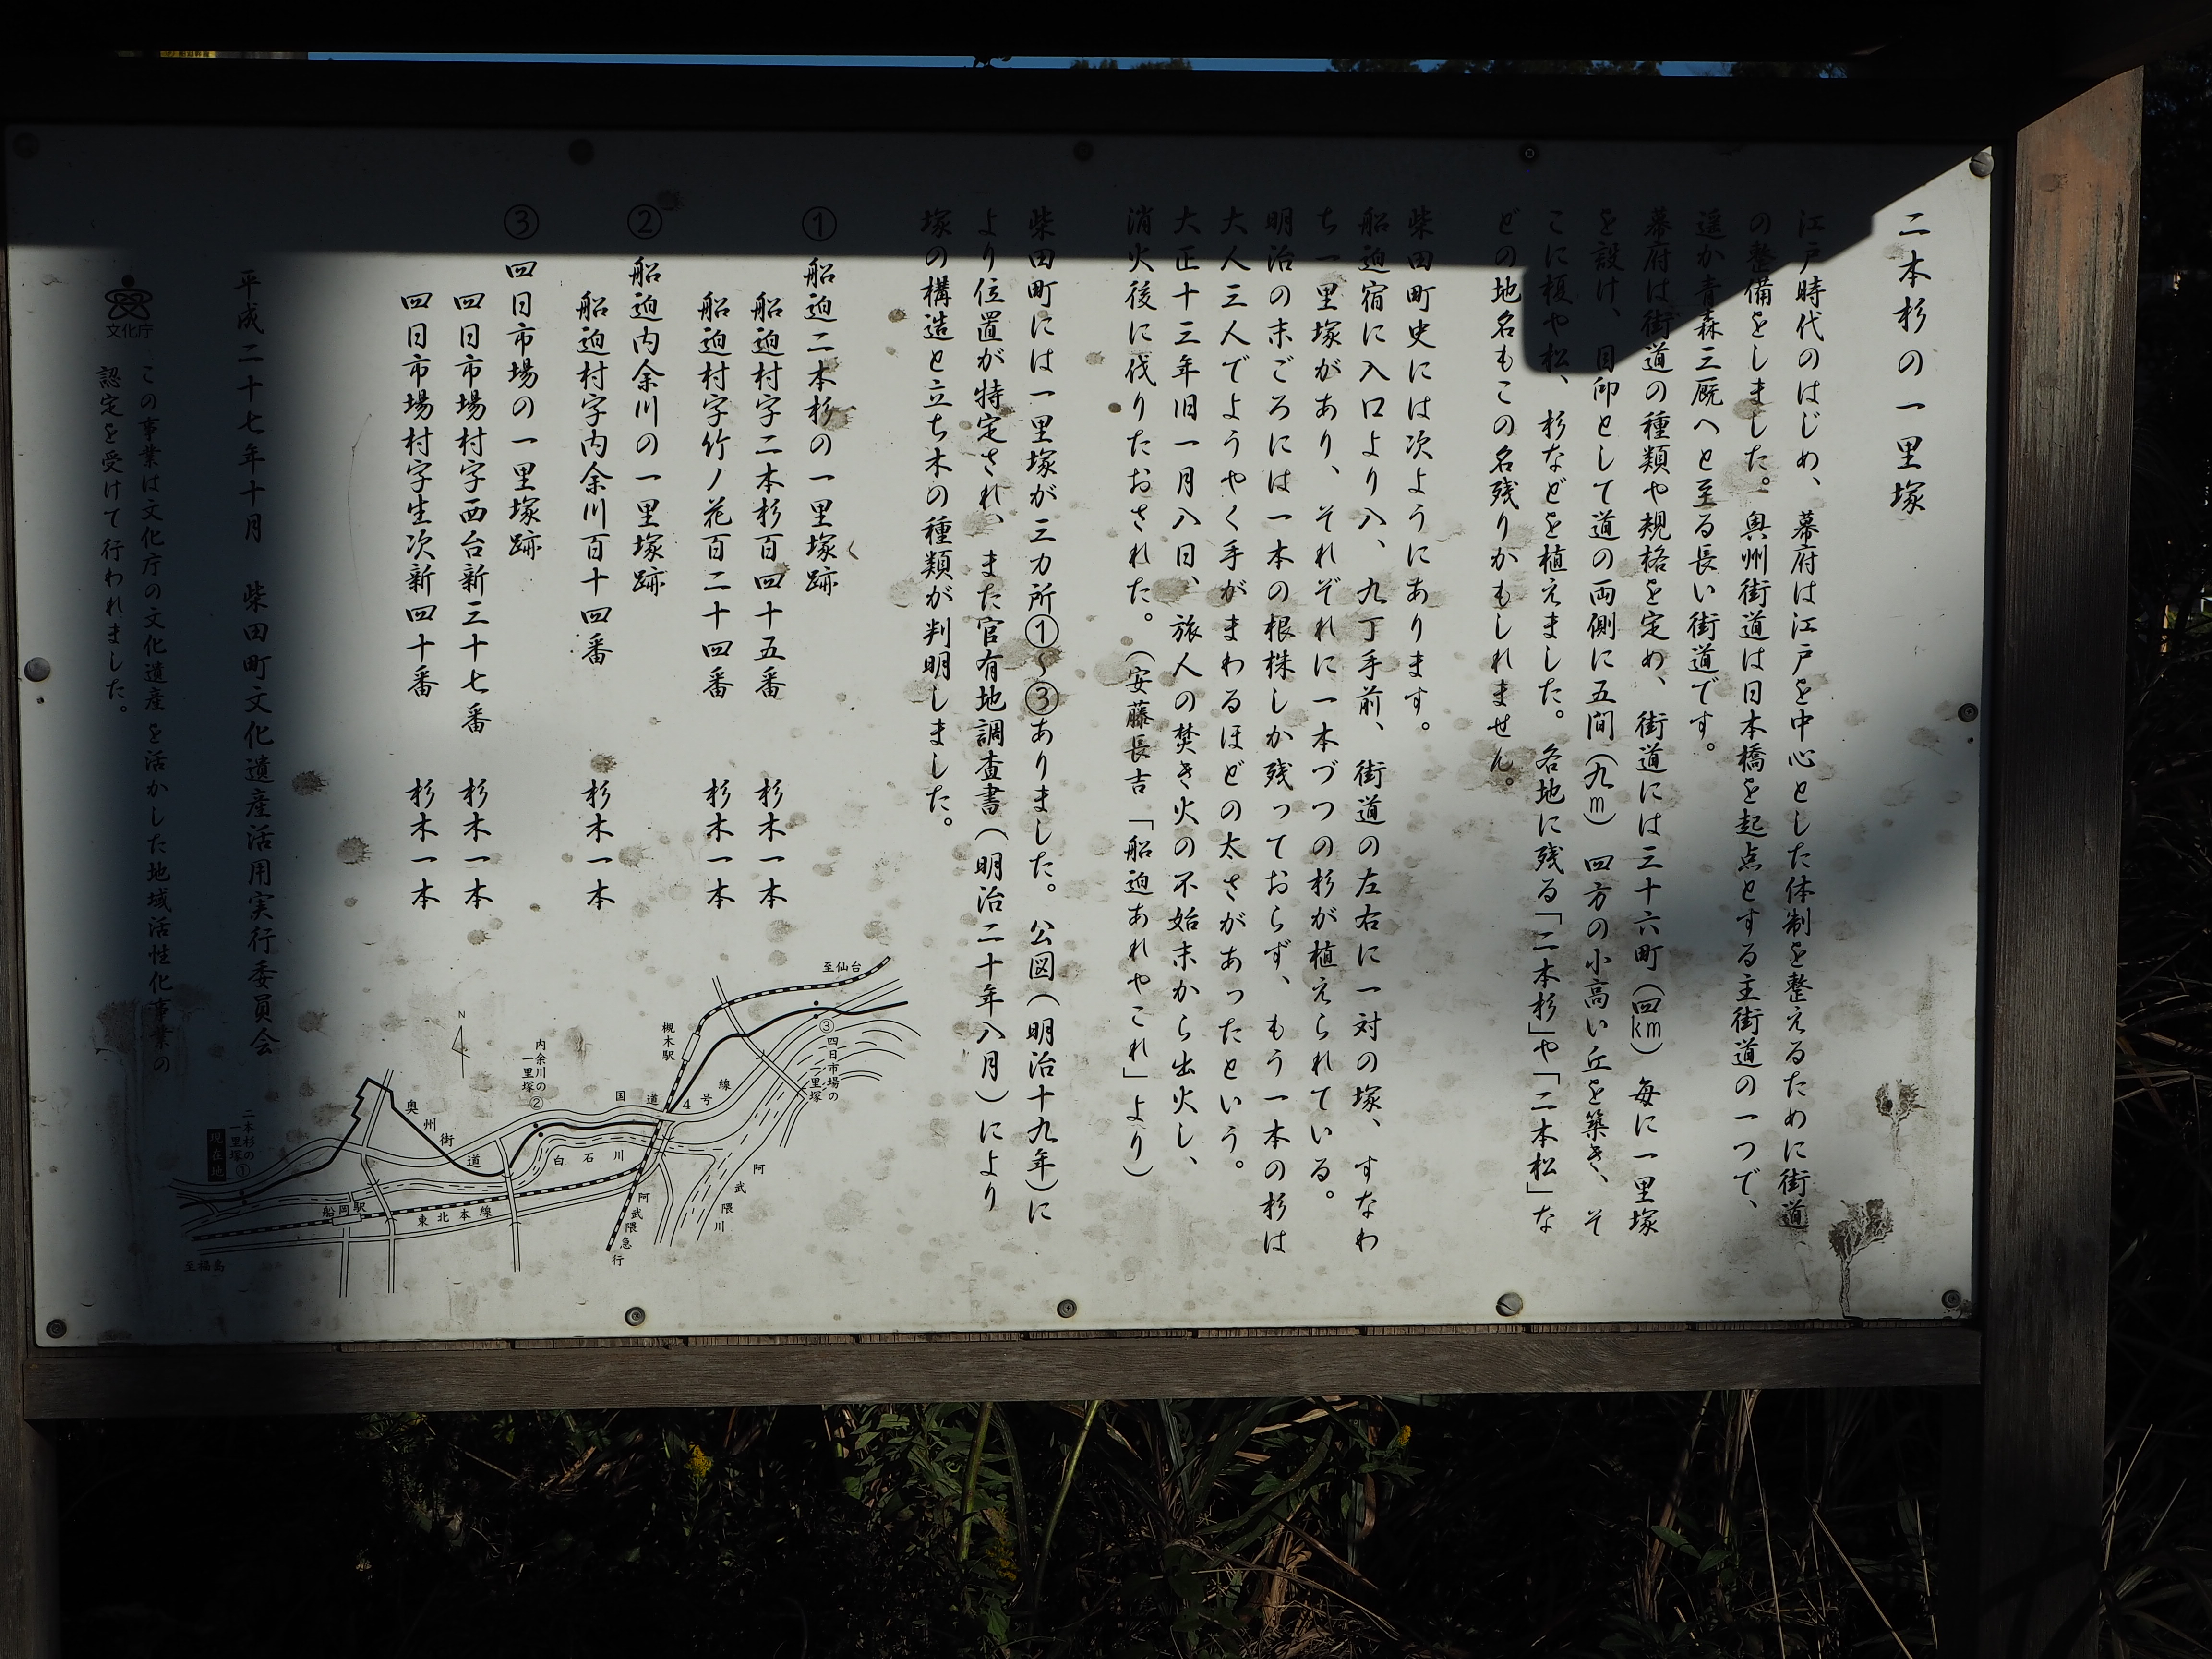 二本杉の一里塚
江戸時代のはじめ、幕府は江戸を中心とした体制を整えるために街道
の整備をしました。奥州街道は日本橋を起点とする主街道の一つで、
遥か青森三厩へと至る長い街道です。
幕府は街道の種類や規格を定め、街道には三十六町（四km）毎に一里塚
を設け、目印として道の両側に五間（九m）四方の小高い丘を築き、そ
こに榎や松、杉などを植えました。各地に残る「二本杉」や「二本松」な
どの地名もこの名残りかもしれません。
柴田町史には次ようにあります。
船迫宿に入口より入、九丁手前、街道の左右に一対の塚、すなわ
ち一里塚があり、それぞれに一本づつの杉が植えられている。
明治の末ごろには一本の根株しか残っておらず、もう一本の杉は
大人三人でようやく手がまわるほどの太さがあったという。
大正十三年旧一月八日、旅人の焚き火の不始末から出火し、
消火後に伐りたおされた。（安藤長吉「船迫あれやこれ」より）
柴田町には一里塚が三カ所①～③ありました。公図（明治十九年）に
より位置が特定され、また官有地調査書（明治二十年八月）により
塚の構造と立ち木の種類が判明しました。
① 船迫二本杉の一里塚跡
船迫村字二本杉百四十五番 杉木一本
船迫村字竹ノ花百二十四番 杉木一本
② 船迫内余川の一里塚跡
船迫村字内余川百十四番 杉木一本
③ 四日市場の一里塚跡
四日市場村字西台新三十七番 杉木一本
四日市場村字生次新四十番 杉木一本
平成二十七年十月 柴田町文化遺産活用実行委員会
文化庁
この事業は文化庁の文化遺産を活かした地域活性化事業の
認定を受けて行われました。
至仙台
③四日市場の
一里塚
槻木駅
国道4号線
N
内余川の
一里塚②
奥州街道
白石川
阿武隈川
阿武隈急行
二本杉の
一里塚①
現在地
船岡駅
東北本線
至福島